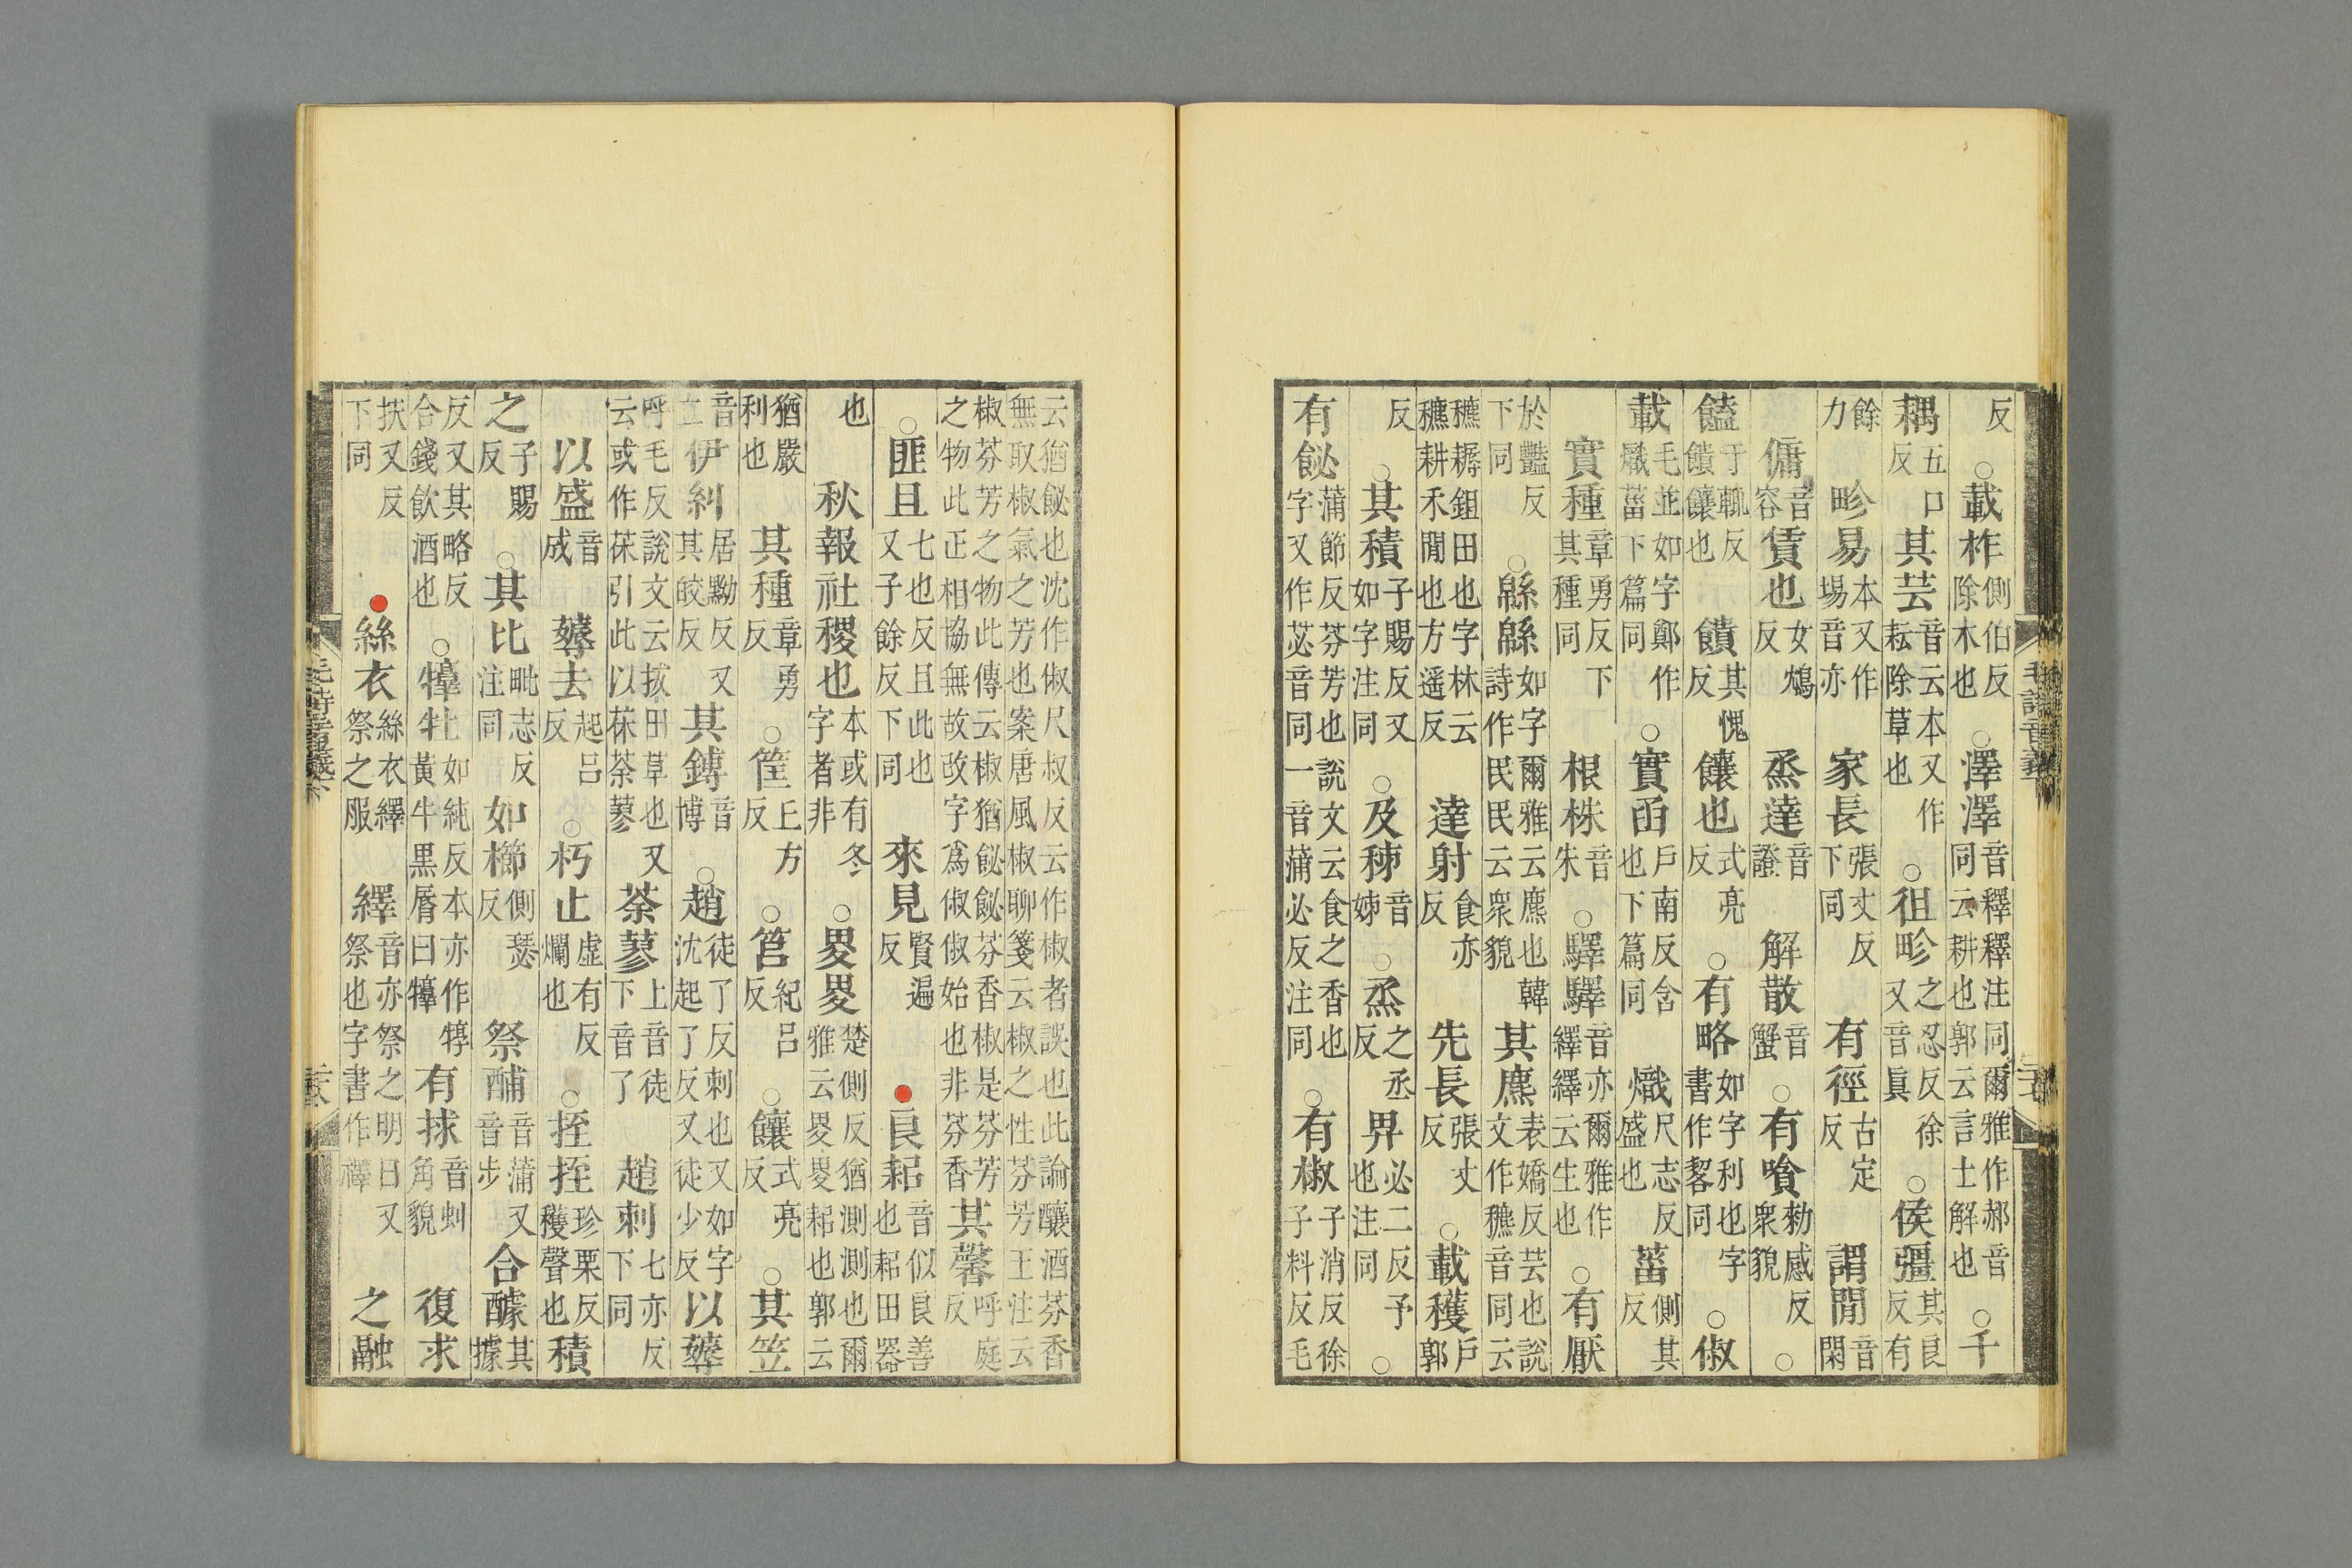 反○載柞側伯反除木也○澤澤音釋釋注同爾雅作郝音同云耕也郭云言士解也○千
耦五口反其芸音云本又作耘除草也○徂畛之忍反徐又音眞○侯彊其良反有
餘力畛易本又作埸音亦家長張丈反下同有徑古定反謂閒音閑
傭音容賃也女鴆反烝達音證解散音蟹○有嗿勑感反衆貌○
饁于輒反饋饟也饋其愧反饟也式亮反○有略如字利也字書作畧同○俶
載毛並如字鄭作熾菑下篇同○實函戶南反含也下篇同熾尺志反盛也菑側其反
實種章勇反下其種同根株音朱○驛驛音亦爾雅作繹繹云生也○有厭
於豔反下同○緜緜如字爾雅云麃也韓詩作民民云衆貌其麃表嬌反芸也說文作穮音同云
穮耨鉏田也字林云穮耕禾閒也方遥反達射食亦反先長張丈反○載穫戶郭
反○其積子賜反又如字注同○及秭音姊○烝之丞反畀必二反予也注同○
有飶蒲節反芬芳也說文云食之香也字又作苾音同一音蒲必反注同○有椒子消反徐子料反毛
云猶飶也沈作俶尺叔反云作椒者誤也此論釀酒芬香無取椒氣之芳也案唐風椒聊箋云椒之性芬芳王注云
椒芬芳之物此傳云椒猶飶飶芬香椒是芬芳之物此正相協無故改字爲俶俶始也非芬香其馨呼庭反
○匪且七也反且此也又子餘反下同來見賢遍反●良耜音似良善也耜田器
也秋報社稷也本或有冬字者非○畟畟楚側反猶測測也爾雅云畟畟耜也郭云
猶嚴利也其種章勇反○筐丘方反○筥紀呂反○饟式亮反○其笠
音立伊糾居黝反又其皎反其鎛音博○趙徒了反刺也又如字沈起了反又徒少反以薅
呼毛反說文云拔田草也又云或作茠引此以茠荼蓼荼蓼上音徒下音了趙刺七亦反下同
以盛音成薅去起呂反○朽止虛有反爛也○挃挃珍栗反穫聲也積
之子賜反○其比毗志反注同如櫛側瑟反祭酺音蒲又音步合醵其據
反又其略反合錢飲酒也○犉牡如純反本亦作犉黃牛黑脣曰犉有捄音虯角貌復求
扶又反下同●絲衣絲衣繹祭之服繹音亦祭之明日又祭也字書作襗之融
毛詩音義下